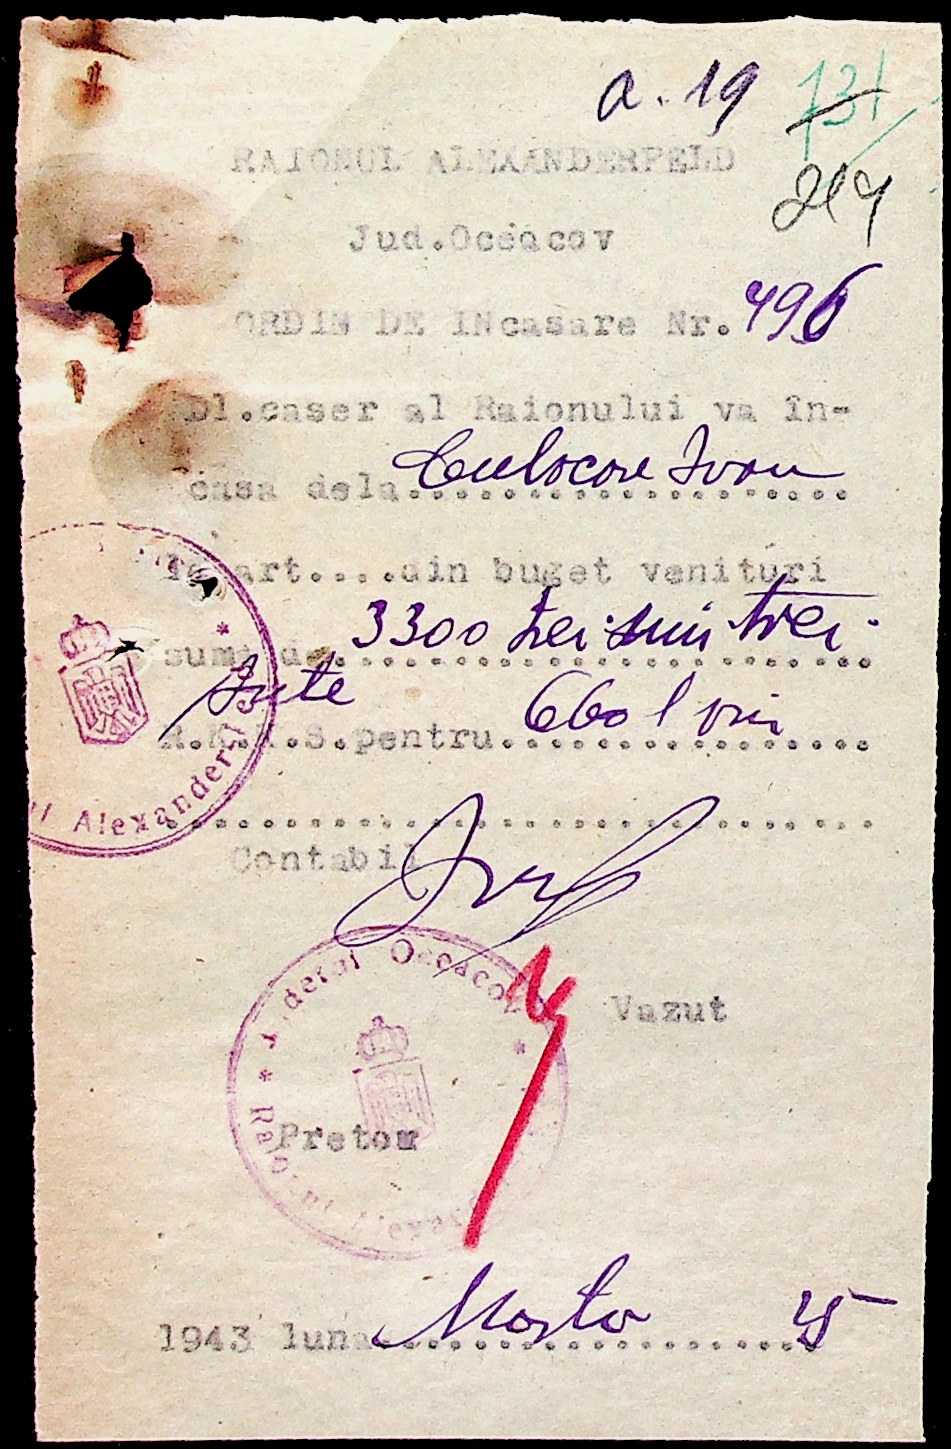 a. 19 131
219
RAIONUL ALEXANDERFELD
Jud.Oceacov
ORDIN DE INcasare Nr. 496
Dl.caser al Raionului va în-
casa dela.................... Ivan
la art....din buget venituri
suma de 3300 trei mii trei
sute
R.K.K.S.pentru 660 l vin
Contabil
Judetul Oceacov
Raionul Alexanderfeld
Vazut
Pretor
1943 luna